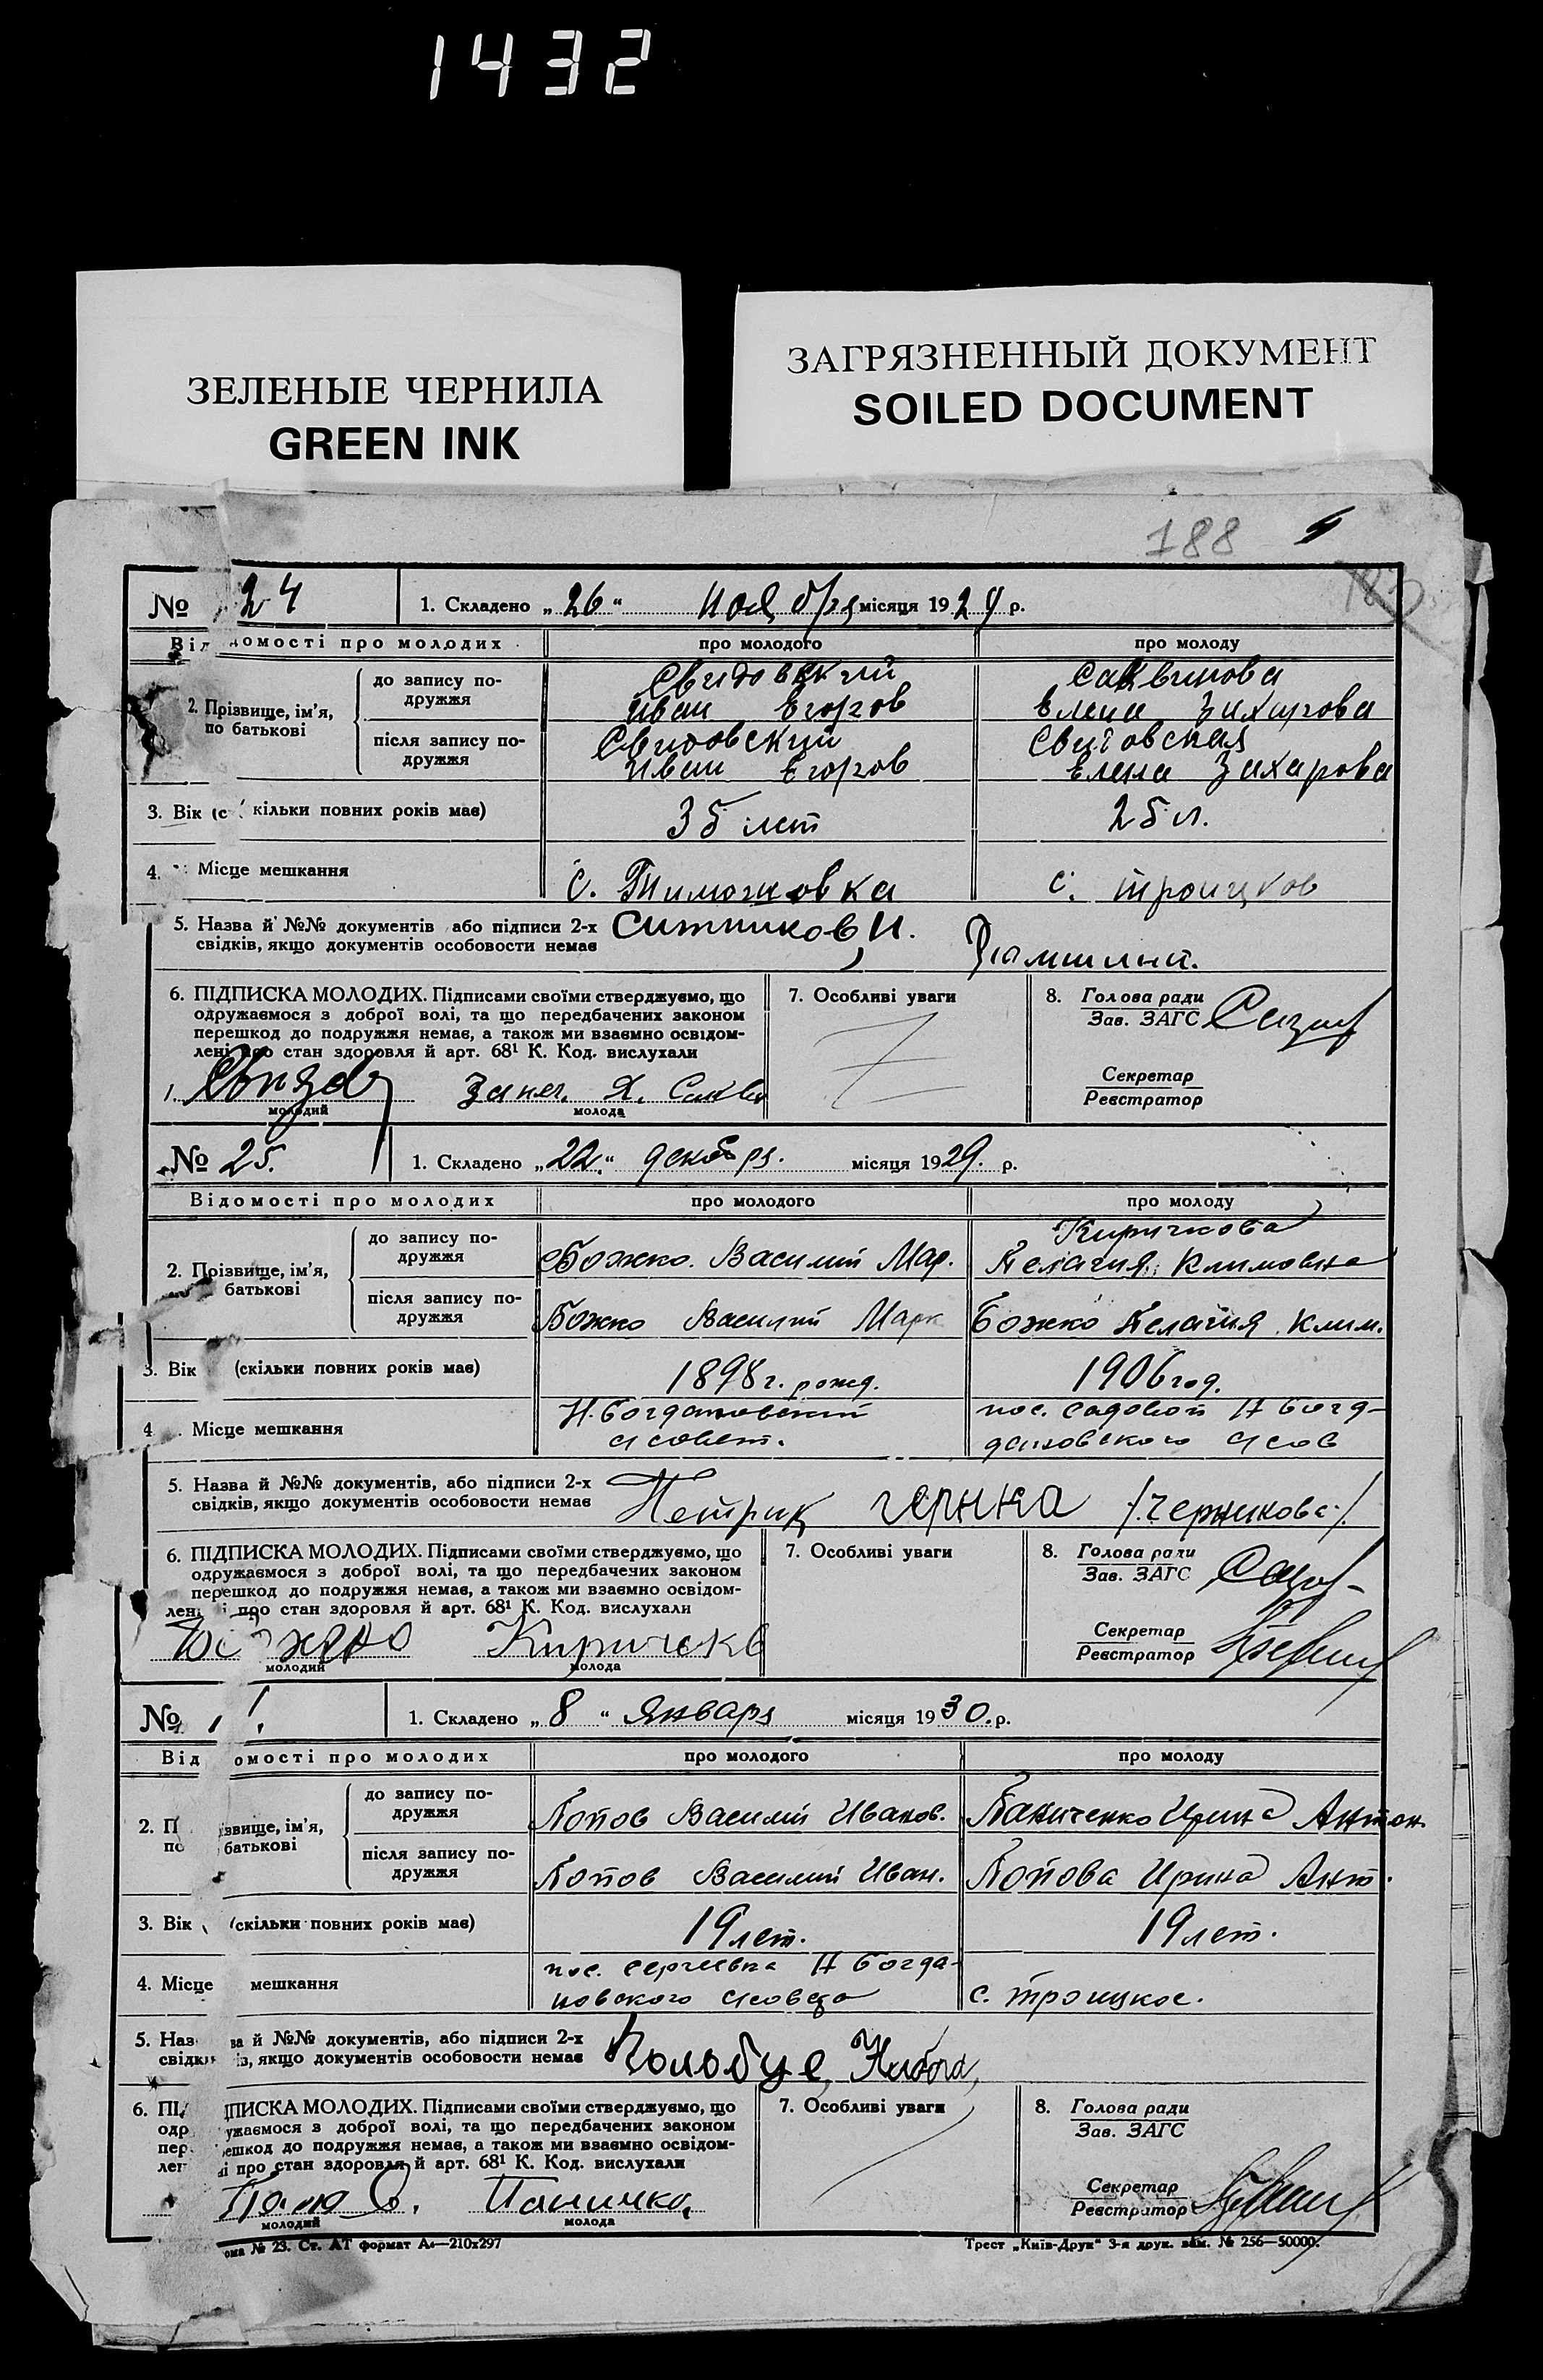 1432
ЗЕЛЕНЫЕ ЧЕРНИЛА
GREEN INK
ЗАГРЯЗНЕННЫЙ ДОКУМЕНТ
SOILED DOCUMENT
188
№ 24
1. Складено „ 26 “ ноября місяця 1929 р.
Відомості про молодих
про молодого
про молоду
2. Прізвище, ім'я, по батькові
до запису по-
дружжя
Свидовский
Иван Егоров
Елена Захарова
після запису по-
дружжя
Свидовский
Иван Егоров
Свидовская
Елена Захарова
3. Вік (скільки повних років має)
35 лет
25 л.
4. Місце мешкання
с. Тимошовка
с. троицков
5. Назва й №№ документів або підписи 2-х
свідків, якщо документів особовости немає
Ситников, И.
6. ПІДПИСКА МОЛОДИХ. Підписами своїми стверджуємо, що
одружаємося з доброї волі, та що передбачених законом
перешкод до подружжя немає, а також ми взаємно освідом-
лені про стан здоровля й арт. 68¹ К. Код. вислухали
1.
молодий
молода
7. Особливі уваги
8. Голова ради
Зав. ЗАГС
Секретар
Реєстратор
№ 25.
1. Складено „ 22. “ декабря. місяця 1929. р.
Відомості про молодих
про молодого
про молоду
2. Прізвище, ім'я,
батькові
до запису по-
дружжя
Божко. Василий Мар.
Киричкова
Пелагия Климовна
після запису по-
дружжя
Божко Василий Марк
Божко Пелагия Клим.
3. Вік (скільки повних років має)
1898 г. рожд.
1906 год.
4. Місце мешкання
Н. Богдановский
с/совет.
пос. Садовой Н Богд-
дановского с/сов
5. Назва й №№ документів, або підписи 2-х
свідків, якщо документів особовости немає
Петрик черника /.черникова./
6. ПІДПИСКА МОЛОДИХ. Підписами своїми стверджуємо, що
одружаємося з доброї волі, та що передбачених законом
перешкод до подружжя немає, а також ми взаємно освідом-
лені про стан здоровля й арт. 68¹ К. Код. вислухали
молодий
молода
7. Особливі уваги
8. Голова ради
Зав. ЗАГС
Секретар
Реєстратор
№ 1.
1. Складено „ 8 “ Января місяця 1930. р.
Відомості про молодих
про молодого
про молоду
2. Прізвище, ім'я,
по батькові
до запису по-
дружжя
Попов Василий Иванов.
Паниченко Ирина Антон.
після запису по-
дружжя
Попов Василий Иван.
Попова Ирина Ант.
3. Вік (скільки повних років має)
19 лет.
19 лет.
4. Місце мешкання
пос. Сергеевка Н Богда-
новского с/совета
с. троицкое.
5. Назва й №№ документів, або підписи 2-х
свідків, якщо документів особовости немає
6. ПІДПИСКА МОЛОДИХ. Підписами своїми стверджуємо, що
одружаємося з доброї волі, та що передбачених законом
перешкод до подружжя немає, а також ми взаємно освідом-
лені про стан здоровля й арт. 68¹ К. Код. вислухали
молодий
молода
7. Особливі уваги
8. Голова ради
Зав. ЗАГС
Секретар
Реєстратор
ома № 23. Ст. АТ формат А₄—210х297
Трест „Київ-Друк“ 3-я друк. зам. № 256—50000.